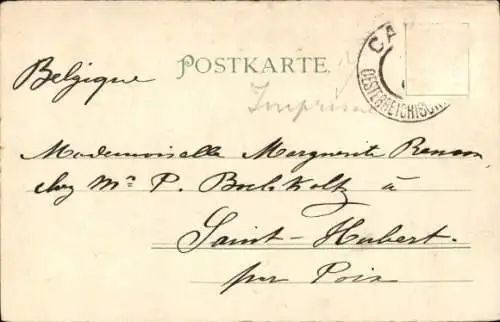 POSTKARTE.
Belgique
CA
OESTERREICHISCH
Imprimé
Mademoiselle Marguerite Renson
chez Mr P. à
Saint-Hubert.
par Poix